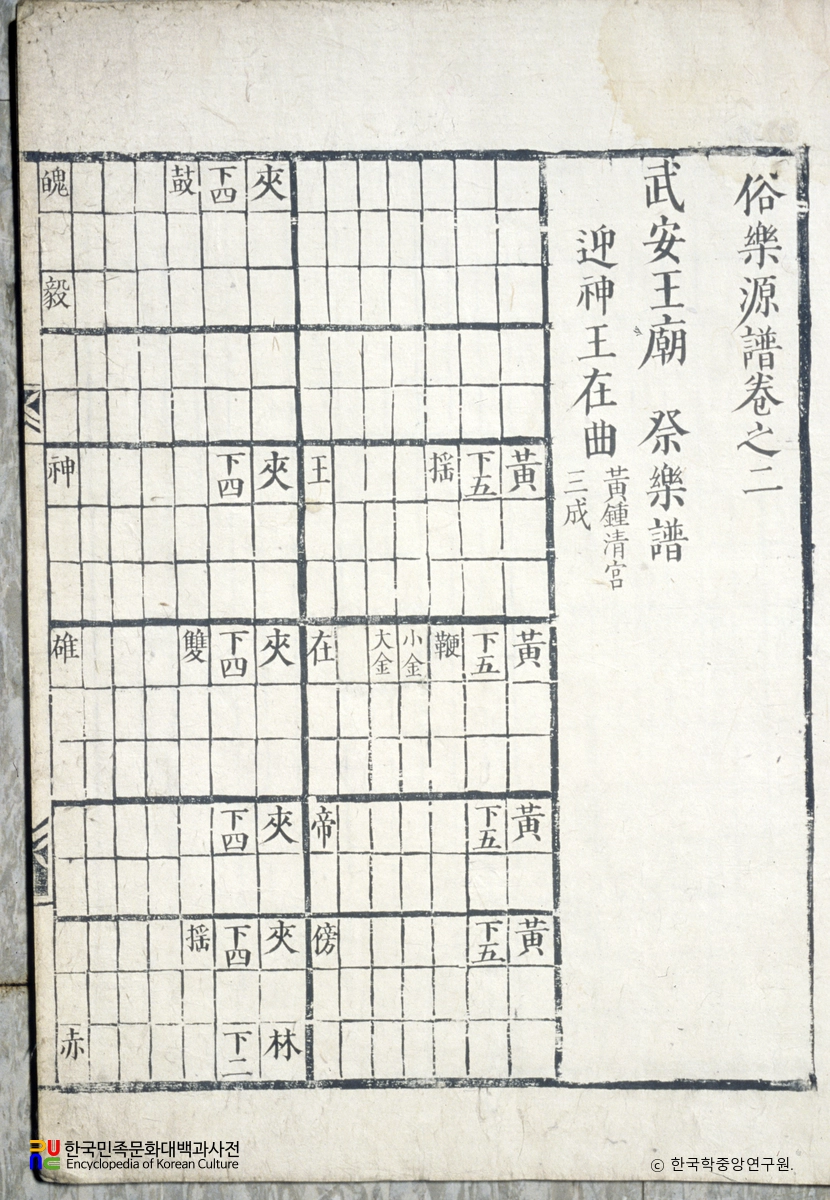 俗樂源譜卷之二
武安王廟 祭樂譜
迎神王在曲 黃鍾清宮
三成
黃 黃 黃 黃
下五 下五 下五 下五
揺 鞭
小金
大金
王 在 帝 傍
夾 夾 夾 夾 夾 林
下四 下四 下四 下四 下四 下二
鼔 雙 揺
魄 毅 神 碓 赤
한국민족문화대백과사전
Encyclopedia of Korean Culture
ⓒ 한국학중앙연구원.